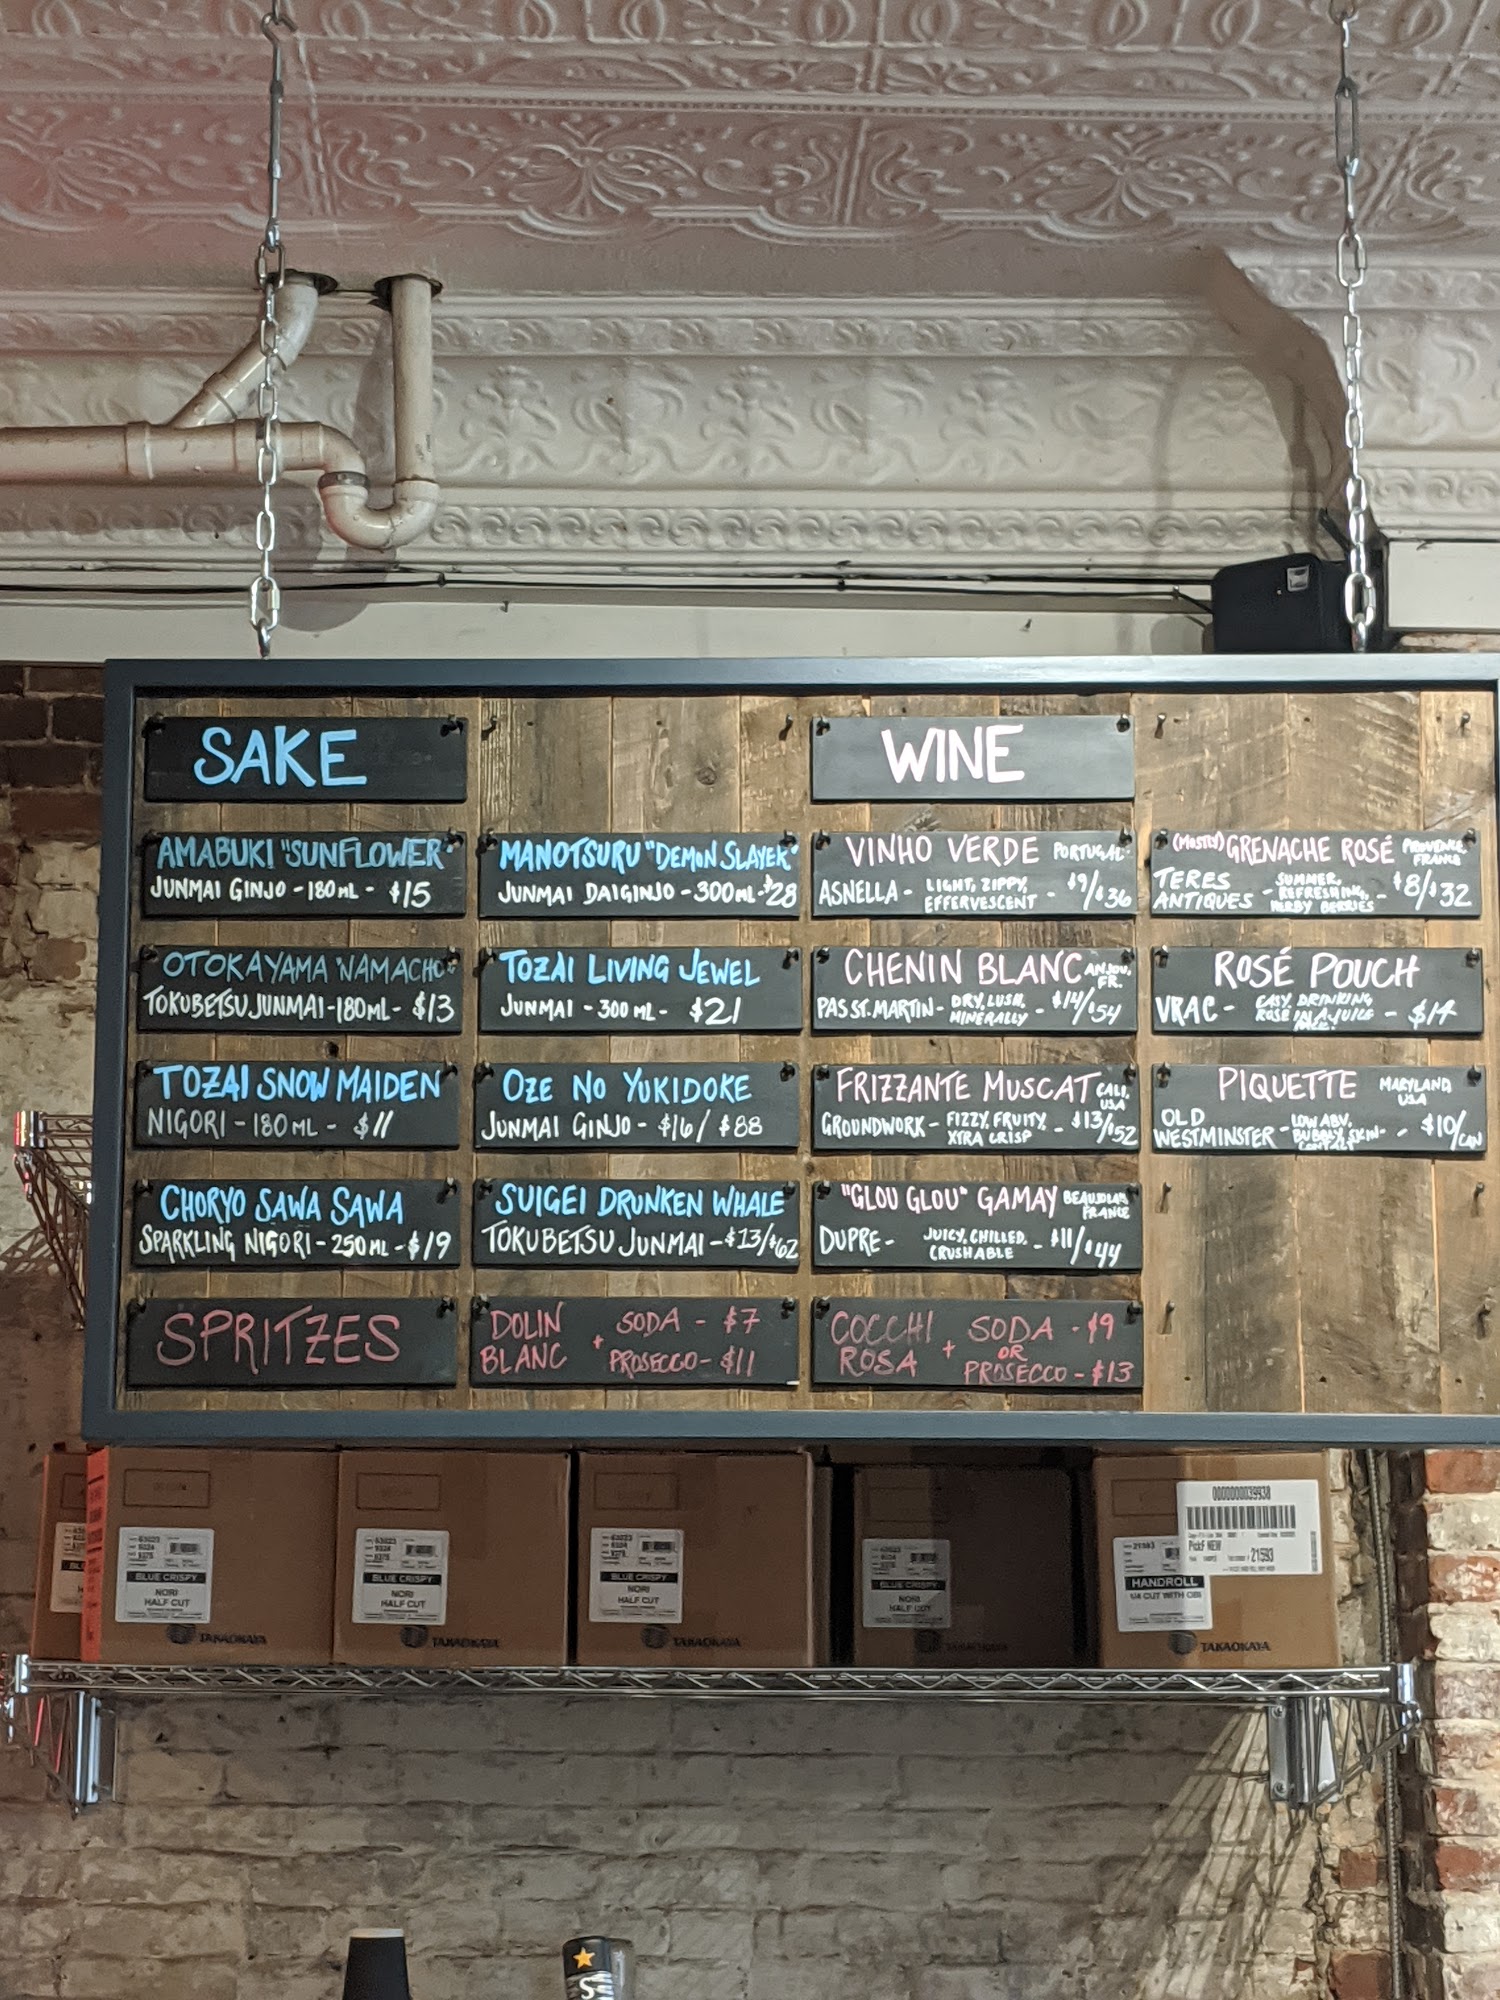 SAKE
AMABUKI "SUNFLOWER"
JUNMAI GINJO - 180ML - $15
OTOKAYAMA "NAMACHO"
TOKUBETSU JUNMAI - 180ML - $13
TOZAI SNOW MAIDEN
NIGORI - 180ML - $11
CHORYO SAWA SAWA
SPARKLING NIGORI - 250ML - $19
MANOTSURU "DEMON SLAYER"
JUNMAI DAIGINJO - 300ML - $28
TOZAI LIVING JEWEL
JUNMAI - 300ML - $21
OZE NO YUKIDOKE
JUNMAI GINJO - $16/$88
SUIGEI DRUNKEN WHALE
TOKUBETSU JUNMAI - $13/$62
WINE
VINHO VERDE PORTUGAL
ASNELLA - LIGHT, ZIPPY,
EFFERVESCENT - $9/$36
CHENIN BLANC ANJOU,
FR.
PAS ST. MARTIN - DRY, LUSH,
MINERALLY - $14/$54
FRIZZANTE MUSCAT CALI,
USA
GROUNDWORK - FIZZY, FRUITY,
XTRA CRISP - $13/$52
"GLOU GLOU" GAMAY BEAUJOLAIS
FRANCE
DUPRE - JUICY, CHILLED,
CRUSHABLE - $11/$44
(MOSTLY) GRENACHE ROSÉ PROVENCE,
FRANCE
TERES
ANTIQUES - SUMMER,
REFRESHING,
HERBY BERRIES - $8/$32
ROSÉ POUCH
VRAC - EASY DRINKING
ROSE IN A JUICE
- $14
PIQUETTE MARYLAND
USA
OLD
WESTMINSTER - LOW ABV,
BUBBLY, SKIN-
CONTACT - $10/CAN
SPRITZES
DOLIN
BLANC + SODA - $7
PROSECCO - $11
COCCHI
ROSA + SODA - $9
OR
PROSECCO - $13
BLUE CRISPY
NORI
HALF CUT
TAKAOKAYA
BLUE CRISPY
NORI
HALF CUT
TAKAOKAYA
BLUE CRISPY
NORI
HALF CUT
TAKAOKAYA
BLUE CRISPY
NORI
HALF CUT
TAKAOKAYA
21593
HANDROLL
1/4 CUT WITH OBI
TAKAOKAYA